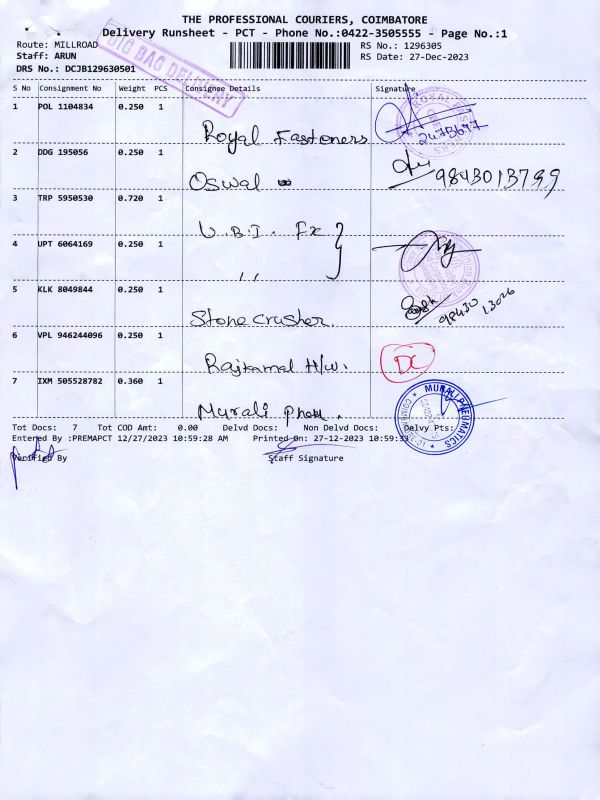 THE PROFESSIONAL COURIERS, COIMBATORE
Delivery Runsheet - PCT - Phone No.:0422-3505555 - Page No.:1
Route: MILLROAD RS No.: 1296305
Staff: ARUN RS Date: 27-Dec-2023
DRS No.: DCJB129630501
BIG BAG DELIVERY
S No Consignment No Weight PCS Consignee Details Signature
1 POL 1104834 0.250 1 Royal Fasteners 2475697
2 DDG 195056 0.250 1 Oswal 9843013799
3 TRP 5950530 0.720 1 U.B.I. Fx
4 UPT 6064169 0.250 1 ,,
5 KLK 8049844 0.250 1 Stone crusher. 98430 13026
6 VPL 946244096 0.250 1 Rajkamal H/w. DC
7 IXM 505528782 0.360 1 Murali Pneu.
MURALI PNEUMATICS
Tot Docs: 7 Tot COD Amt: 0.00 Delvd Docs: Non Delvd Docs: Delvy Pts:
Entered By :PREMAPCT 12/27/2023 10:59:28 AM Printed On: 27-12-2023 10:59:33
Verified By Staff Signature